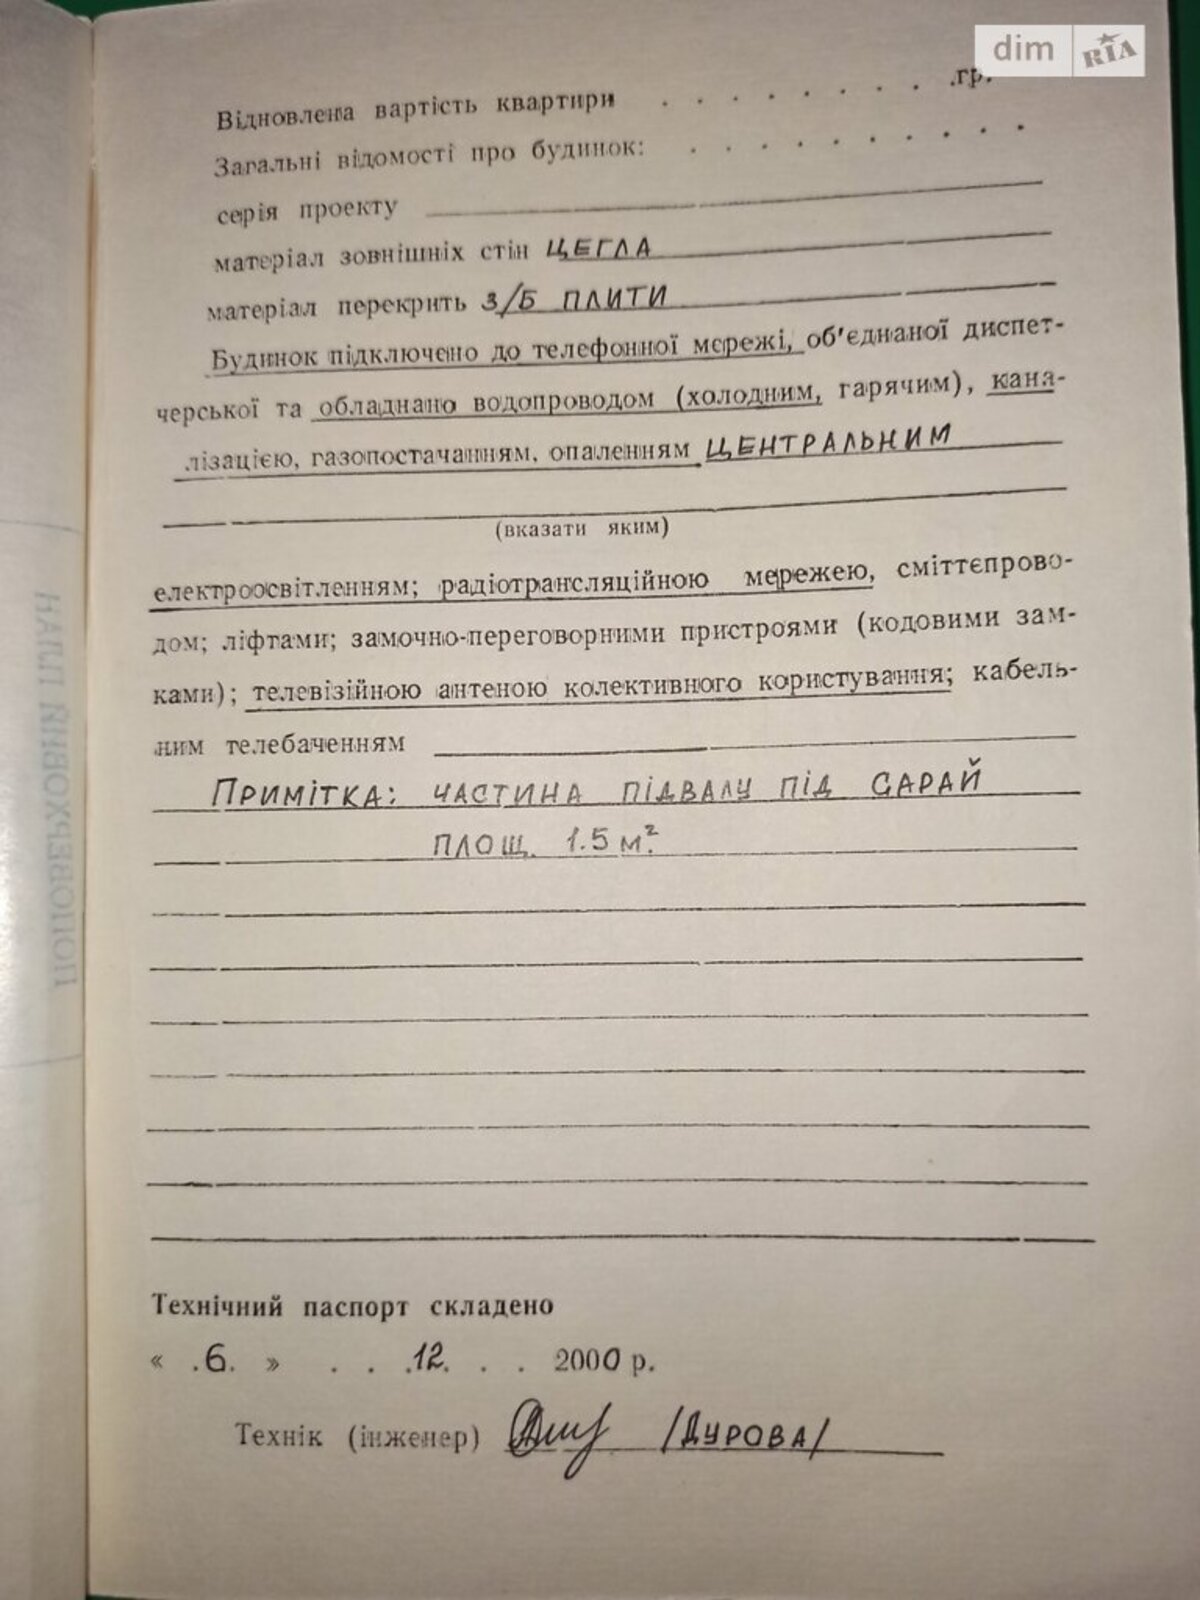 dim RIA
Відновлена вартість квартири . . . . . . . . .гр.
Загальні відомості про будинок: . . . . . . . . . .
серія проекту
матеріал зовнішніх стін ЦЕГЛА
матеріал перекрить З/Б ПЛИТИ
Будинок підключено до телефонної мережі, об'єднаної диспет-
черської та обладнано водопроводом (холодним, гарячим), кана-
лізацією, газопостачанням, опаленням ЦЕНТРАЛЬНИМ
(вказати яким)
електроосвітленням; радіотрансляційною мережею, сміттєпрово-
дом; ліфтами; замочно-переговорними пристроями (кодовими зам-
ками); телевізійною антеною колективного користування; кабель-
ним телебаченням
ПРИМІТКА: ЧАСТИНА ПІДВАЛУ ПІД САРАЙ
ПЛОЩ. 1.5 м².
Технічний паспорт складено
« .6. » . . .12. . . 2000 р.
Технік (інженер) /ДУРОВА/
ПОПОВЕРХОВИЙ ПЛАН